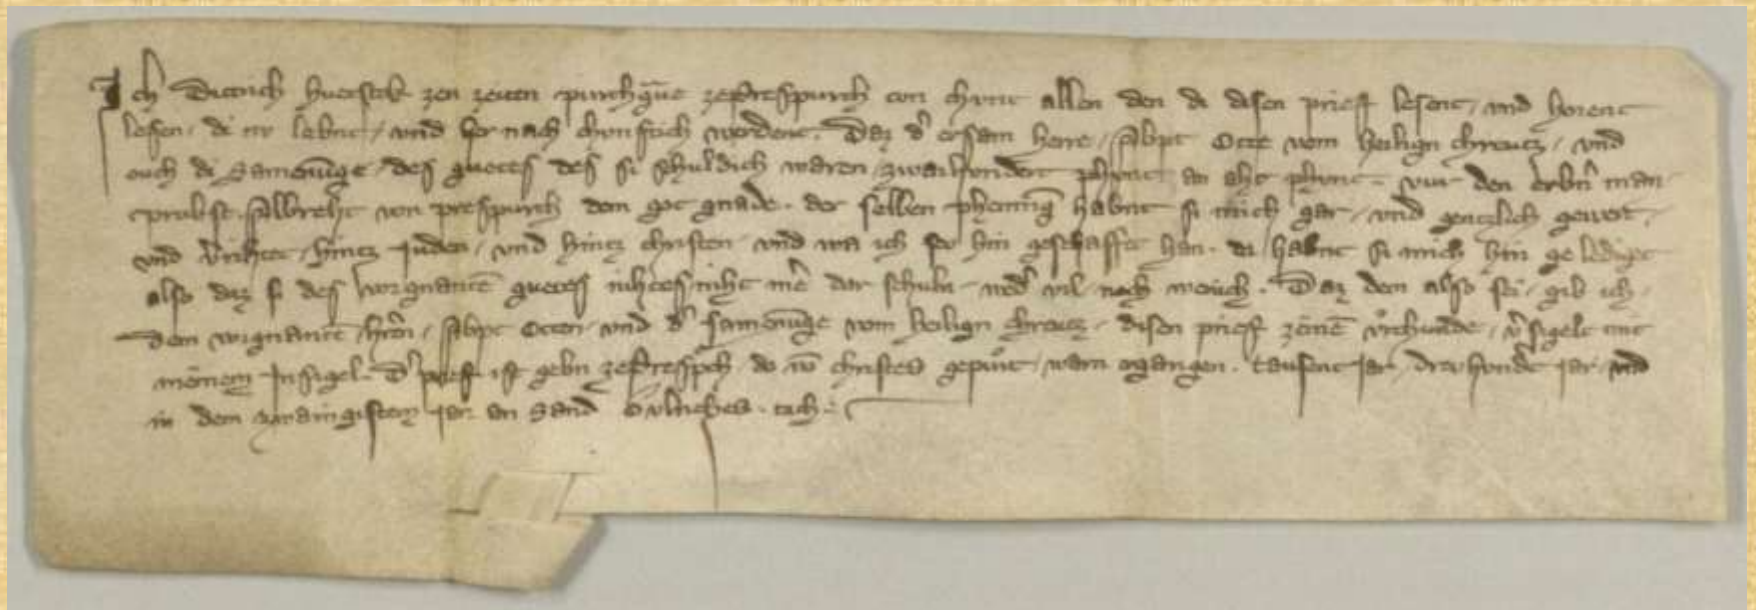 Ich Dietrich zen zeiten purchg̃ue zeprespurch tvn chvnt allen den di disen prief lesent / vnd horent
lesen / di nv lebnt / vnd her nach chvnftich werdent . Daz d̾ ersam herre / Abpt Otte vom heilign chreutz / vnd
ouch di Samenũge / des guetes des si schuldich waren / zwaihvndert phvnt an aht phvnt . vur den erbn̾ man
probst Albreht von prespurch dem got gnade . der selben phenning habnt si mich gar / vnd gentzlich gewert /
vnd v̾rihtet / hintz juden / vnd hintz christen / vnd wa ich hin geschaffet han . da habnt si mich hin gelediget
also daz si des vorgnantē guetes nihtes niht mē dar schuln / wed̾ vil noch wench . Daz dem also sei / gib ich /
dem vorgnantē h̾ren / Abpt Otten / vnd d̾ samenũge vom heilign chreutz / disen prief zeinē vrchunde / v̾sigelt mit
meinem Insigel . D̾ prief ist gebn zeprespch / do christes gepurt / warn ergangen . tausent jar / drevhvndt jar / vnd
in dem zwaingistem jar an Sand Vlriches tach .